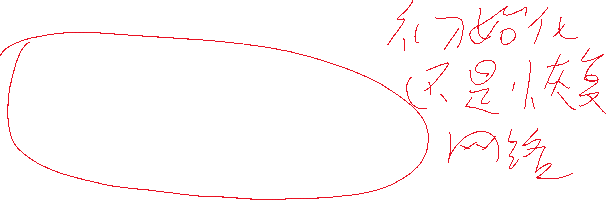 初始化
还是恢复
网络